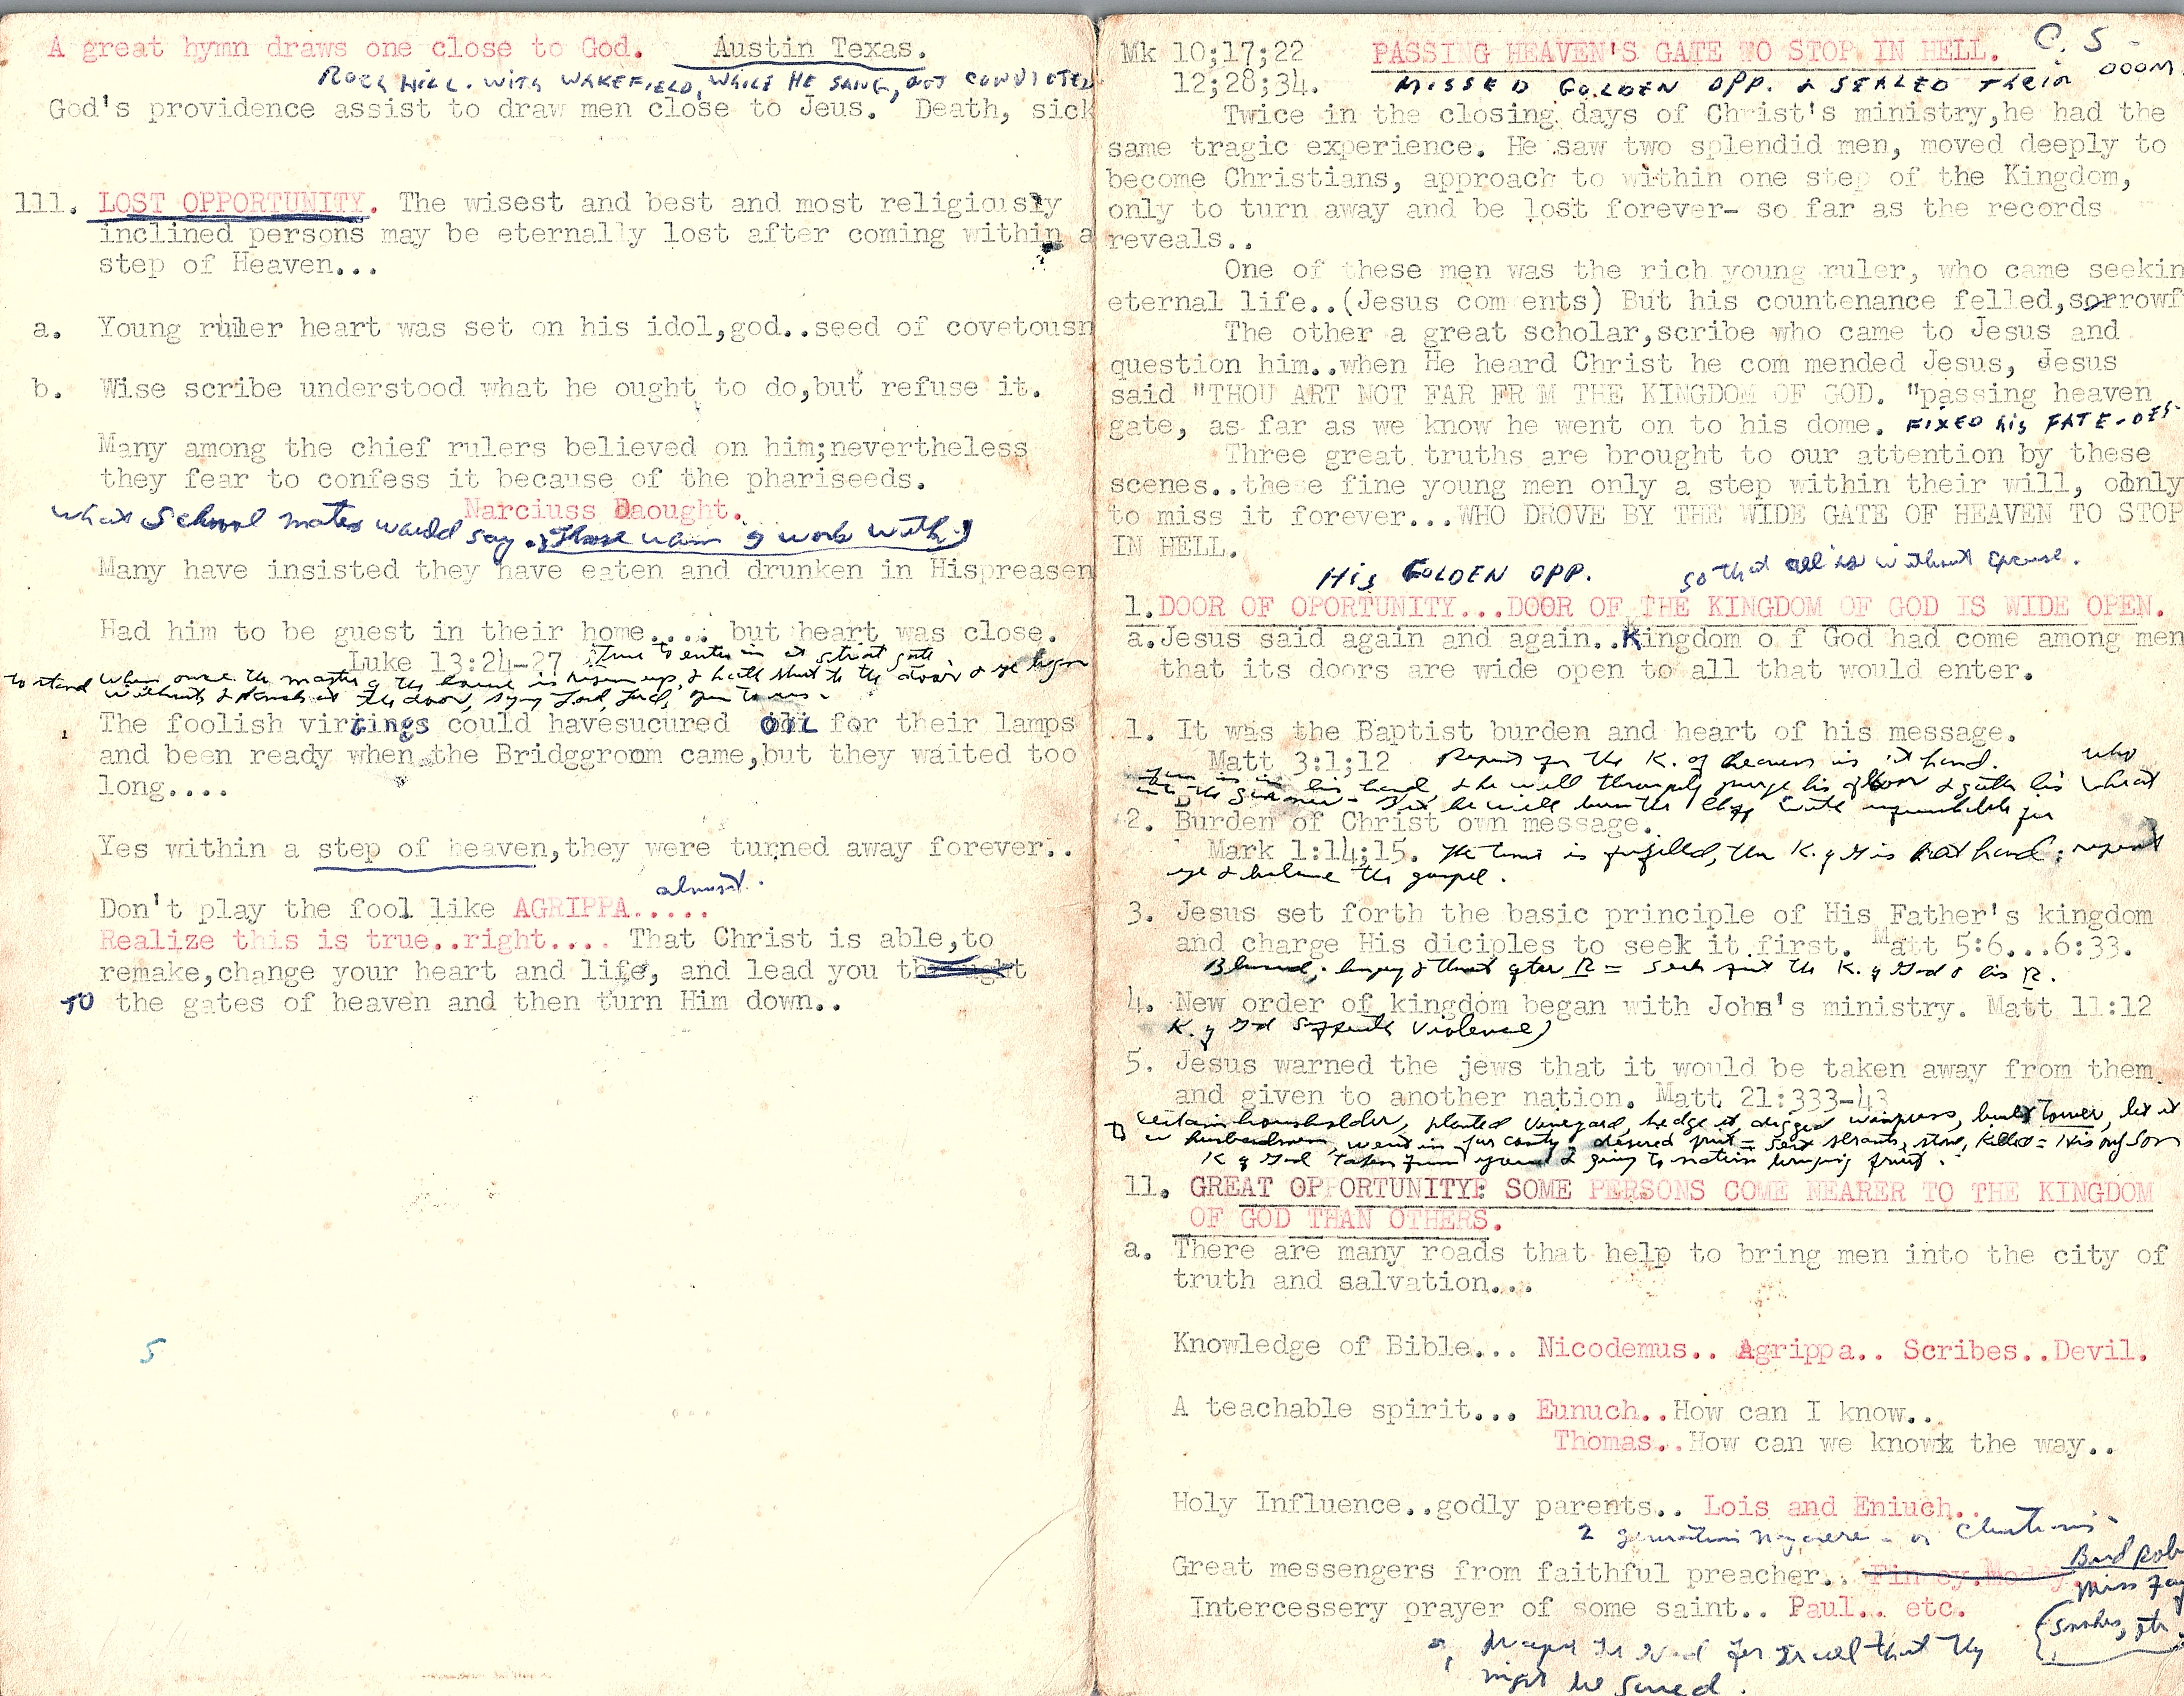 A great hymn draws one close to God. Austin Texas.
ROCK HILL. WITH WAKEFIELD, WHILE HE SANG, GOT CONVICTED
God's providence assist to draw men close to Jeus. Death, sick
111. LOST OPPORTUNITY. The wisest and best and most religiously
inclined persons may be eternally lost after coming within a
step of Heaven...
a. Young ruler heart was set on his idol,god..seed of covetousn
b. Wise scribe understood what he ought to do,but refuse it.
Many among the chief rulers believed on him;nevertheless
they fear to confess it because of the phariseeds.
Narciuss Daought.
what School mates would say. Those whom I work with)
Many have insisted they have eaten and drunken in Hispreasen
Had him to be guest in their home.... but heart was close.
Luke 13:24-27 to enter in at strait gate
to stand when once the master of the house is risen up, & hath shut to the door & ye begin
without & knock at the door, saying Lord, Lord, open to us.
The foolish virgings could havesucured OIL for their lamps
and been ready when the Bridggroom came,but they waited too
long....
Yes within a step of heaven,they were turned away forever..
almost.
Don't play the fool like AGRIPPA.....
Realize this is true..right.... That Christ is able,to
remake,change your heart and life, and lead you
TO the gates of heaven and then turn Him down..
5
Mk 10;17;22 PASSING HEAVEN'S GATE TO STOP IN HELL. C. S -
12;28;34. MISSED GOLDEN OPP. & SEALED Their DOOM
Twice in the closing days of Christ's ministry,he had the
same tragic experience. He saw two splendid men, moved deeply to
become Christians, approach to within one step of the Kingdom,
only to turn away and be lost forever- so far as the records
reveals..
One of these men was the rich young ruler, who came seekin
eternal life..(Jesus com ents) But his countenance felled,sorrowf
The other a great scholar,scribe who came to Jesus and
question him..when He heard Christ he com mended Jesus, Jesus
said "THOU ART NOT FAR FR M THE KINGDOM OF GOD. "passing heaven
gate, as far as we know he went on to his dome. FIXED his FATE-DES-
Three great truths are brought to our attention by these
scenes..these fine young men only a step within their will, only
to miss it forever...WHO DROVE BY THE WIDE GATE OF HEAVEN TO STOP
IN HELL.
His GOLDEN OPP. so that all is without excuse.
1.DOOR OF OPORTUNITY...DOOR OF THE KINGDOM OF GOD IS WIDE OPEN.
a.Jesus said again and again..Kingdom o f God had come among men
that its doors are wide open to all that would enter.
1. It was the Baptist burden and heart of his message.
Matt 3:1;12 Repent for the K. of heaven is at hand. who
fan is in his hand, & he will throughly purge his floor & gather his wheat
into the garner - but he will burn the chaff with unquenchable fire
2. Burden of Christ own message.
Mark 1:14;15. The time is fulfilled, the K. of G is at hand; repent
ye & believe the gospel.
3. Jesus set forth the basic principle of His Father's kingdom
and charge His diciples to seek it first. Matt 5:6...6:33.
Blessed, hungry & thirst after R = Seek first the K. of God & his R.
4. New order of kingdom began with John's ministry. Matt 11:12
K. of God suffereth violence)
5. Jesus warned the jews that it would be taken away from them
and given to another nation. Matt 21:333-43
Certain householder, planted vineyard, hedge it, digged winepress, built tower, let it
husbandmen, went in far country desired fruit = Sent servants, stone, killed = His only Son
K of God taken from you & given to nation bringing fruit.
11. GREAT OPPORTUNITY: SOME PERSONS COME NEARER TO THE KINGDOM
OF GOD THAN OTHERS.
a. There are many roads that help to bring men into the city of
truth and salvation...
Knowledge of Bible... Nicodemus.. Agrippa.. Scribes..Devil.
A teachable spirit... Eunuch..How can I know..
Thomas..How can we know the way..
Holy Influence..godly parents.. Lois and Eniuch..
2 generation - or Christians
Great messengers from faithful preacher.. Bud Rob
Miss
Intercessery prayer of some saint.. Paul.. etc.
prayer to God for Israel that they
might be saved.